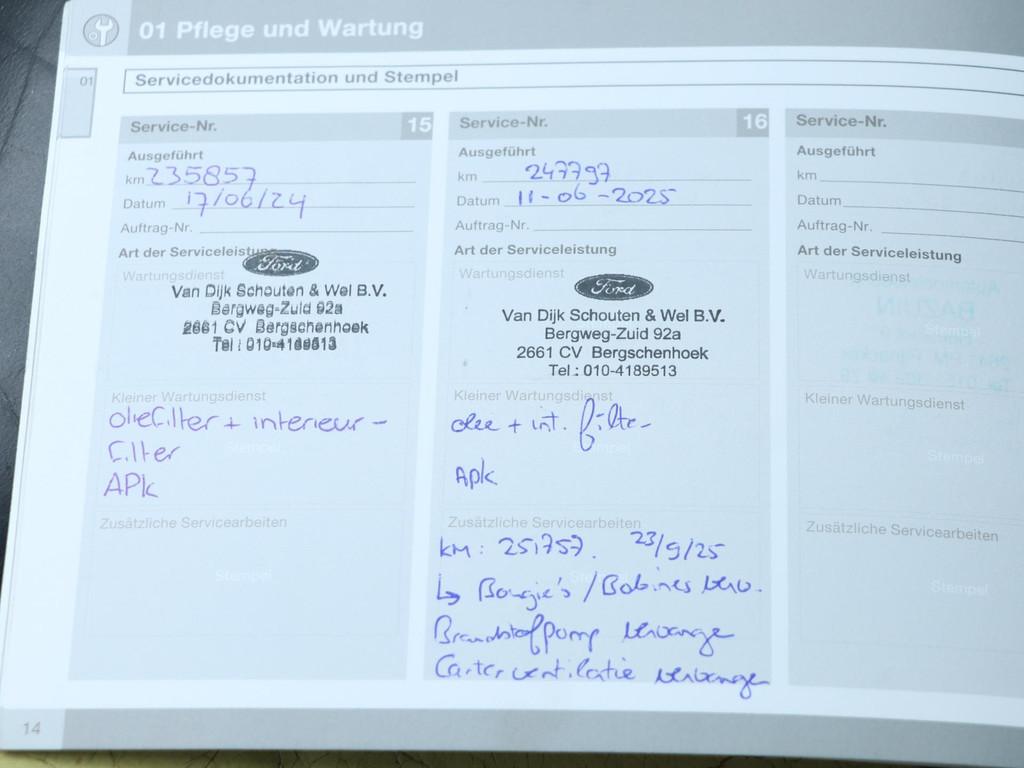 01 Pflege und Wartung
01
Servicedokumentation und Stempel
Service-Nr. 15
Ausgeführt
km 235857
Datum 17/06/24
Auftrag-Nr.
Art der Serviceleistung
Ford
Wartungsdienst
Van Dijk Schouten & Wel B.V.
Bergweg-Zuid 92a
2661 CV Bergschenhoek
Tel : 010-4189513
Kleiner Wartungsdienst
oliefilter + interieur -
filter
Stempel
APK
Zusätzliche Servicearbeiten
Stempel
Service-Nr. 16
Ausgeführt
km 247797
Datum 11-06-2025
Auftrag-Nr.
Art der Serviceleistung
Wartungsdienst
Ford
Van Dijk Schouten & Wel B.V.
Bergweg-Zuid 92a
2661 CV Bergschenhoek
Tel : 010-4189513
Kleiner Wartungsdienst
olie + int. filter
APK
Zusätzliche Servicearbeiten
km: 251757. 23/9/25
↳ Bougie's / Bobines verv.
Brandstofpomp vervange
Carterventilatie vervangen
Service-Nr.
Ausgeführt
km
Datum
Auftrag-Nr.
Art der Serviceleistung
Wartungsdienst
BAZUIN
Stempel
Kleiner Wartungsdienst
Stempel
Zusätzliche Servicearbeiten
Stempel
14